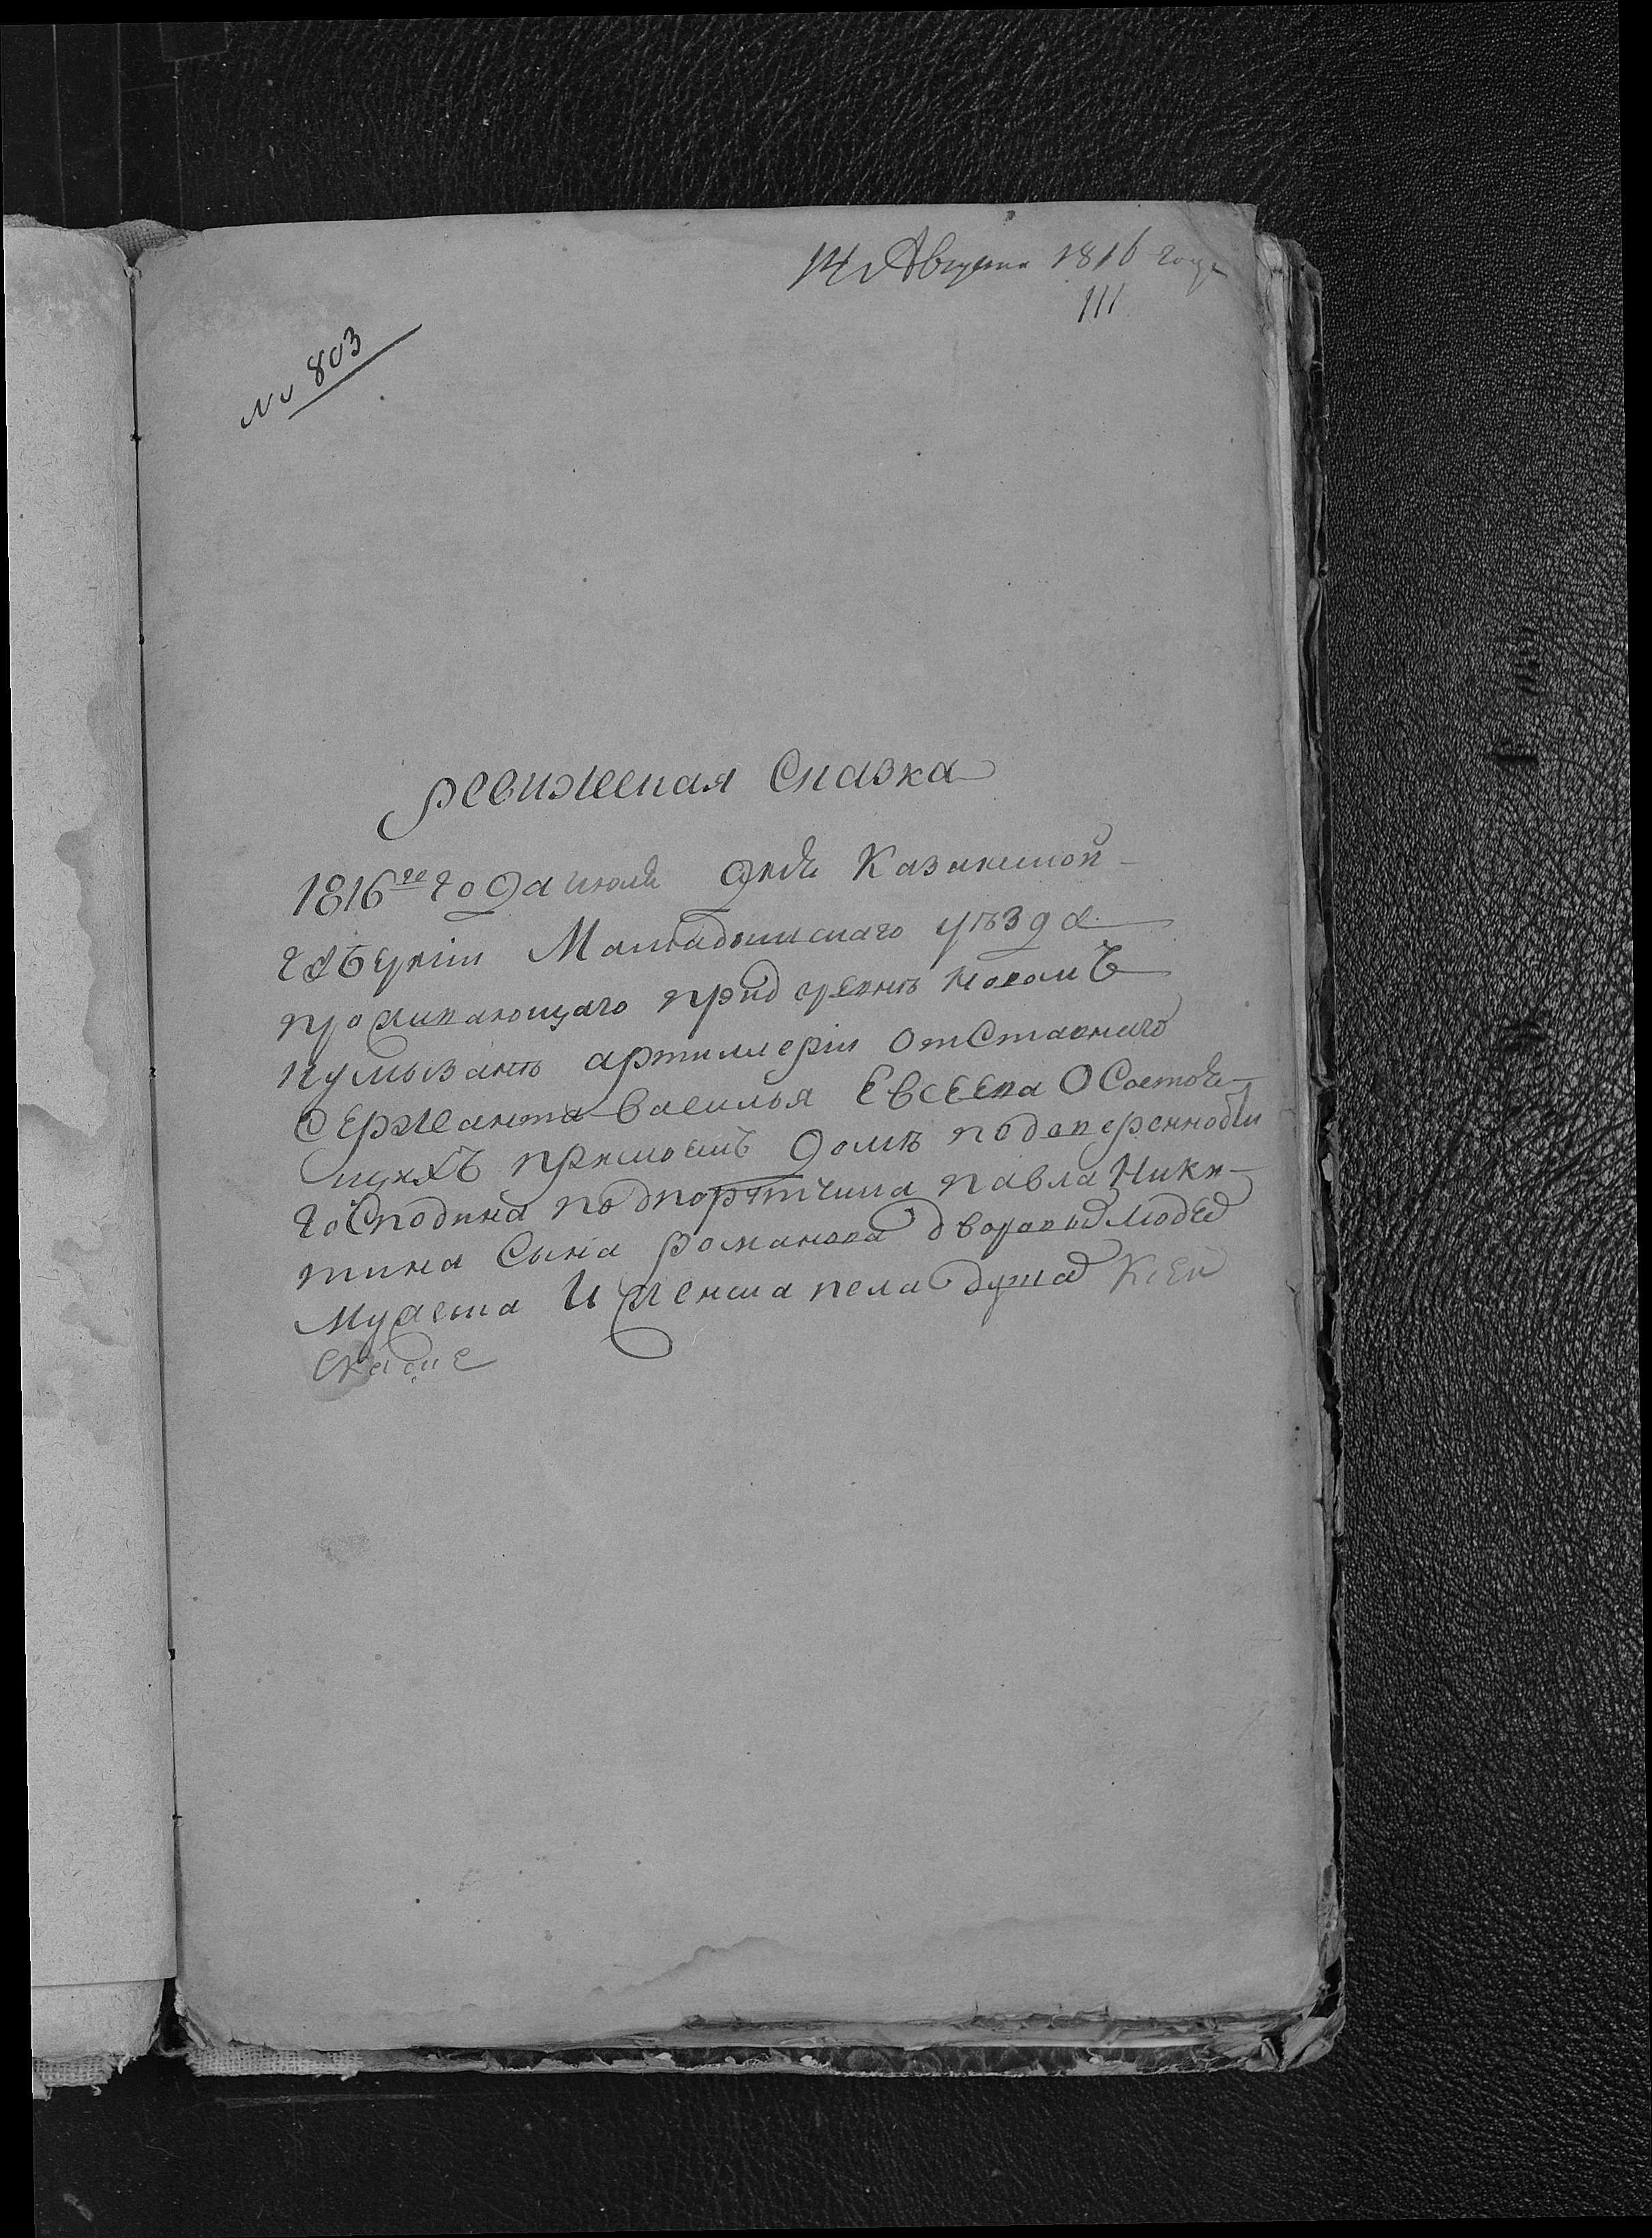 14 Августа 1816 года
111
№ 803
Ревижская Сказка
1816го года июля дня Казанской
губернии Мамадышскаго уѣзда
проживающаго при деревнѣ новомъ
кумызанѣ артиллерии отставнаго
Сержанта Василья Евсеева О Состоя
щихъ при моемъ доме
господина подпорутчика павла Ники
тина Сына романова дворовых людей
мужеска И женска пола душах